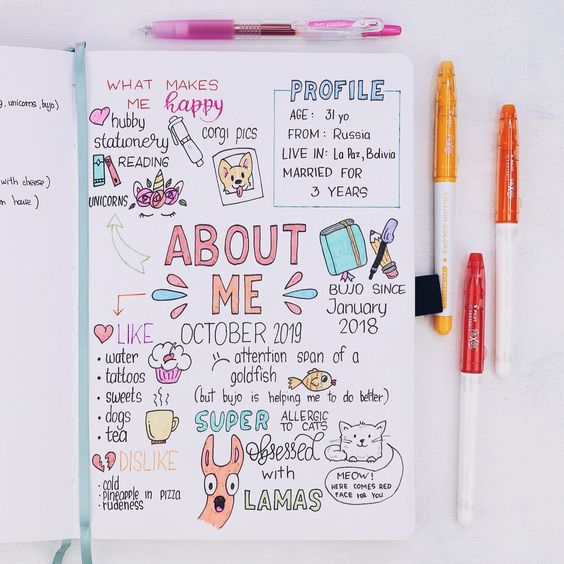 , unicorns, bujo)
with cheese)
WHAT MAKES
ME happy
hubby
stationery
READING
corgi pics
UNICORNS
PROFILE
AGE: 31 yo
FROM: Russia
LIVE IN: La Paz, Bolivia
MARRIED FOR
3 YEARS
ABOUT
ME
BUJO SINCE
January
2018
LIKE
• water
• tattoos
• sweets
• dogs
• tea
DISLIKE
• cold
• pineapple in pizza
• rudeness
OCTOBER 2019
attention span of a
goldfish
(but bujo is helping me to do better)
SUPER ALLERGIC
TO CATS
obsessed
with
LAMAS
MEOW!
HERE COMES RED
FACE FOR YOU